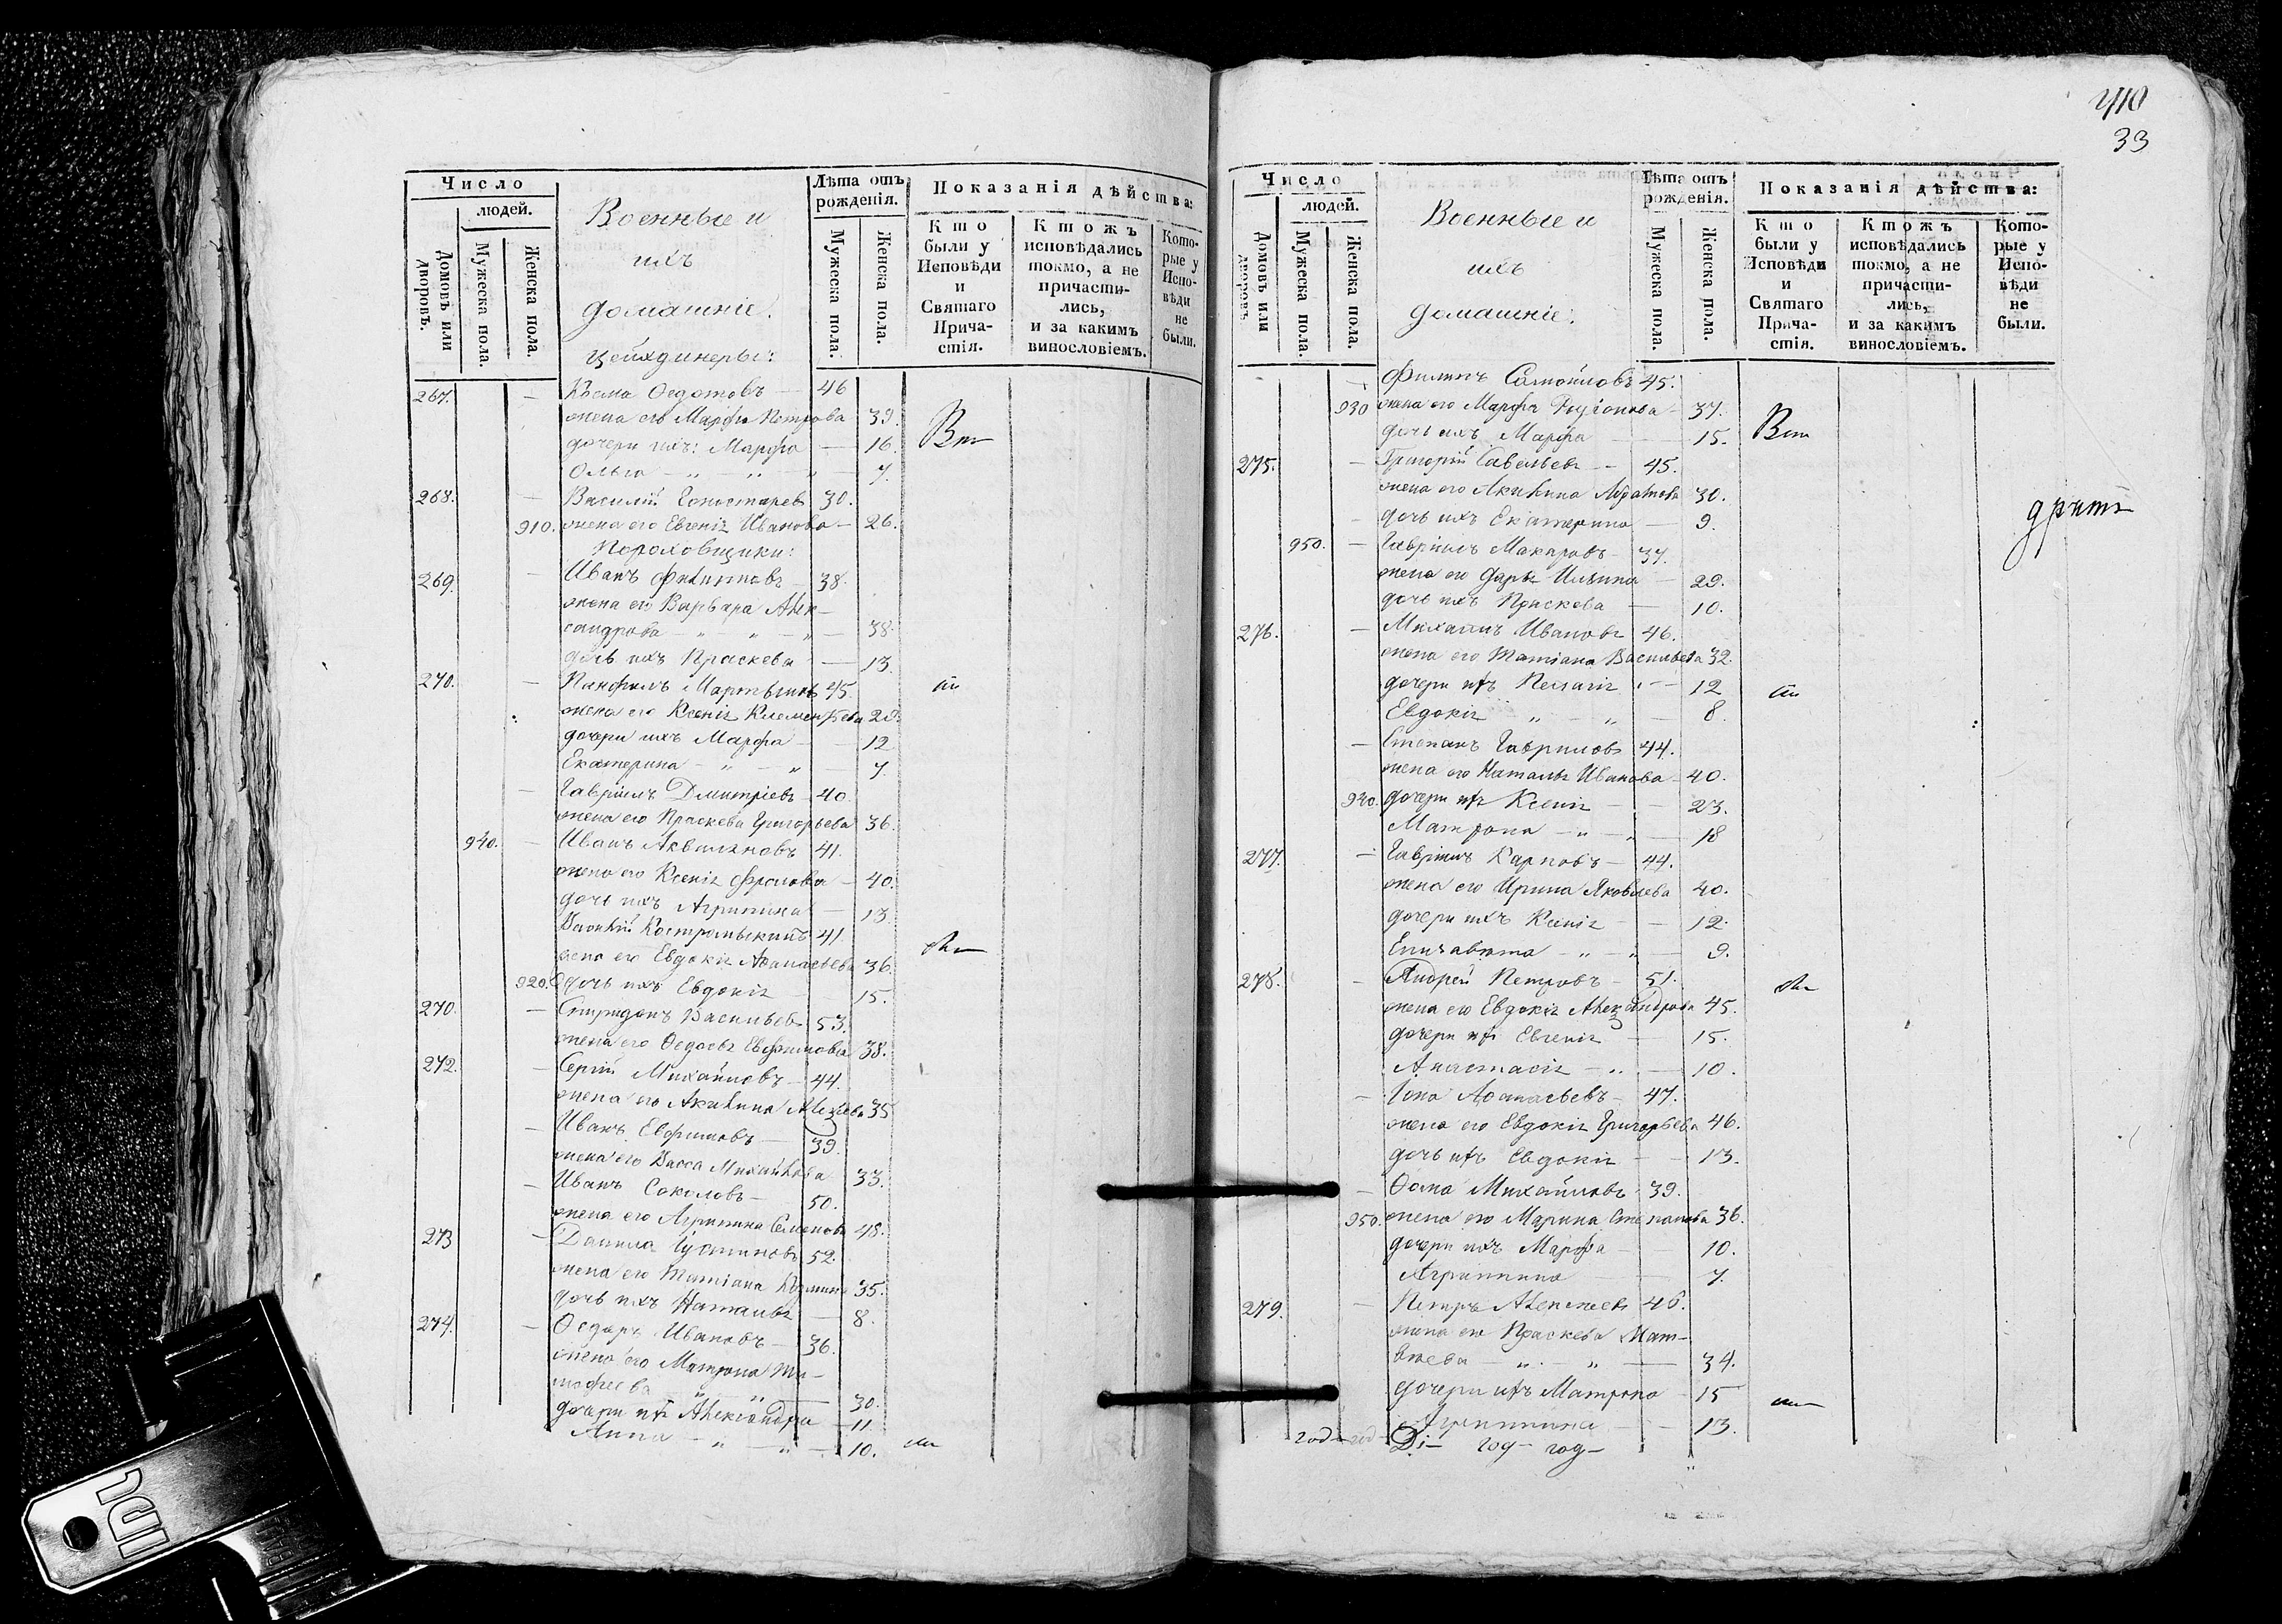 Число
людей.
Домовъ или дворовъ.
Мужеска пола.
Женска пола.
Военные и
ихъ
домашніе.
цейхдинеры:
Лѣта отъ рожденія.
Мужеска пола.
Женска пола.
Показанія дѣйства:
Кто были у Исповѣди и Святаго Причастія.
Ктожъ исповѣдались токмо, а не причастились, и за какимъ винословіемъ.
Которые у Исповѣди не были.
267. — Косма Ѳедотовъ — 46
жена его Марфа Петрова 39.
дочери ихъ: Марфа — 16.
Ольга — „ „ — 7.
268. — Василій Горностаревъ 30.
910. жена его Евгенія Иванова — 26.
Пороховщики:
269. — Иванъ Филиповъ 38.
жена его Варвара Алек-
сандрова — „ „ — „ — 38.
дочь ихъ Праскева — 13.
270. — Панфилъ Мартынов 45.
жена его Ксенія Клементьева 28.
дочери ихъ Марфа — 12
Екатерина — „ — „ — 7.
— Гавріилъ Дмитріевъ 40.
жена его Праскева Григорьева 36.
940. — Иванъ Аквиляновъ 41.
жена его Ксенія Фролова — 40.
дочь ихъ Агрипина — 13.
Василій 41.
жена его Евдокія Аѳанасьева 36.
920. дочь ихъ Евдокія 15.
270. — Спиридонъ Васильевъ 53.
жена его Ѳедосья Евфимова 38.
272. — Сергій Михайловъ — 44.
жена его Акилина 35
— Иванъ Евфимовъ — 39.
жена его Васса Михайлова 33.
— Иванъ Соколовъ — 50.
жена его Агрипина Семенова 48.
273 — Данила 52.
жена его Татіана 35.
дочь ихъ Наталья — 8.
274. — Ѳедоръ Ивановъ — 36.
жена его Матрона Ти-
мофеева „ „ — 30.
дочери ихъ Александра — 11.
Анна — „ — „ — 10.
410
33
Число
людей.
Домовъ или дворовъ.
Мужеска пола.
Женска пола.
Военные и
ихъ
домашніе.
Лѣта отъ рожденія.
Мужеска пола.
Женска пола.
Показанія дѣйства:
Кто были у Исповѣди и Святаго Причастія.
Ктожъ исповѣдались токмо, а не причастились, и за какимъ винословіемъ.
Которые у Исповѣди не были.
— Филипъ Самойловъ 45.
930 жена его Марфа Родіонова — 37.
дочь ихъ Марфа — 15.
275. — Григорій Савельевъ — 45.
жена его Акилина 30.
— дочь ихъ Екатерина — 9.
950. — Гавріилъ Макаровъ — 37.
жена его Дарья Ильина — 29.
дочь ихъ Праскева — 10.
276. — Михаилъ Ивановъ 46.
жена его Татіана Васильева 32.
дочери ихъ Пелагія — 12
Евдокія „ — „ — 8.
— Степанъ Гавриловъ 44.
жена его Наталья Иванова — 40.
940. дочери ихъ Ксенія — 23.
Матрона — „ — „ — 18
277. — Гавріилъ Карповъ — 44.
жена его Ирина Яковлева 40.
дочери ихъ Ксенія — 12.
Елизавета — „ — „ — 9.
278. — Андрей Петровъ — 51.
жена его Евдокія Александрова 45.
дочери ихъ Евгенія — 15.
Анастасія — „ — 10.
— Іона Аѳанасьевъ — 47.
жена его Евдокія Григорьева 46.
дочь ихъ Евдокія — 13.
— Ѳома Михайловъ 39.
950. жена его Марина Степанова 36.
дочери ихъ Марфа — 10.
Агрипина — 7.
279. — Петръ Алексеевъ 46.
жена его Праскева Мат-
вѣева „ — „ — 34.
дочери ихъ Матрона — 15
Агрипина — 13.